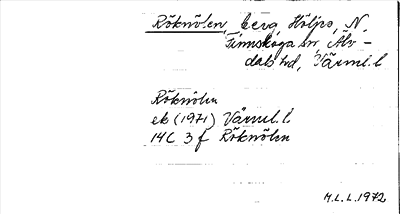 Röknölen, berg, Höljes, N.
Finnskoga sn, Älv-
dals hd, Värml. l.
Röknölen
ek (1971) Värml. l.
14C 3 f Röknölen
M.L.L. 1972